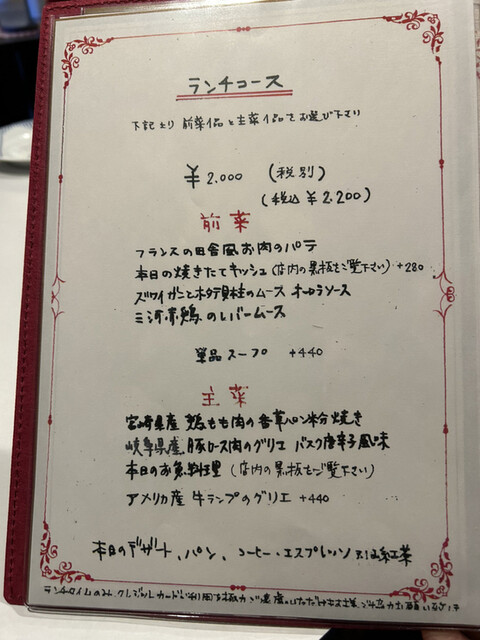 ランチコース
下記より 前菜1品と主菜1品をお選び下さい
¥2.000 (税別)
(税込 ¥2.200)
前菜
フランスの田舎風お肉のパテ
本日の焼きたてキッシュ(店内の黒板をご覧下さい) +280
ズワイガニとホタテ貝柱のムース オーロラソース
三河赤鶏のレバームース
単品スープ +440
主菜
宮崎県産 鶏もも肉の香草パン粉焼き
岐阜県産 豚ロース肉のグリエ バスク唐辛子風味
本日のお魚料理 (店内の黒板をご覧下さい)
アメリカ産 牛ランプのグリエ +440
本日のデザート、パン、コーヒー・エスプレッソ 又は紅茶
ランチタイムのみ、クレジットカードご利用を極力ご遠慮いただけます様、ご協力お願い致します